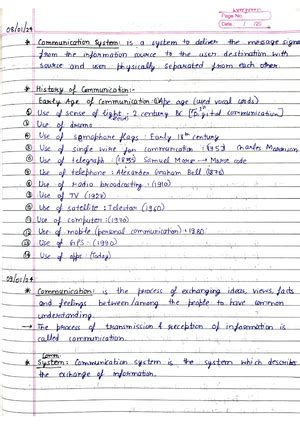 Evergreen
Page No.
Date / /20
08/01/24
* Communication System:- is a system to deliver the message signal
from the information source to the user destination with
source and user physically separated from each other.
* History of Communication:-
Early Age of Communication: Ape age (used vocal cords)
Use of sense of light: 2 century BC [1st Digital communication]
Use of drums
Use of semaphore flags: Early 18th century
Use of single wire for communication: Charles Morrison
Use of telegraph (1835) Samuel Morse → Morse code
Use of telephone: Alexander Graham Bell (1876)
Use of radio broadcasting: (1910)
Use of TV (1927)
Use of satellite: Telestar (1960)
Use of computer: (1970)
Use of mobile (personal communication): 1980
Use of GPS: (1990)
Use of apps: (Today)
09/01/24
* Communication: is the process of exchanging ideas, views, facts
and feelings between/among the people to have common
understanding.
→ The process of transmission & reception of information is
called communication.
Comm.
* System: Communication system is the system which describes
the exchange of information.